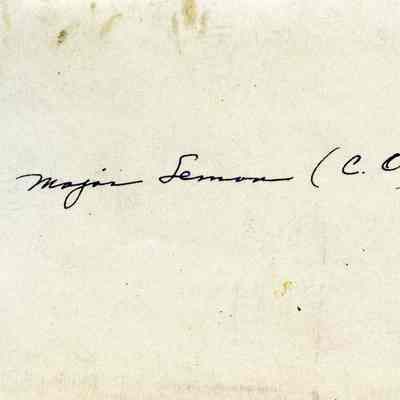 Major Lemon (C. O